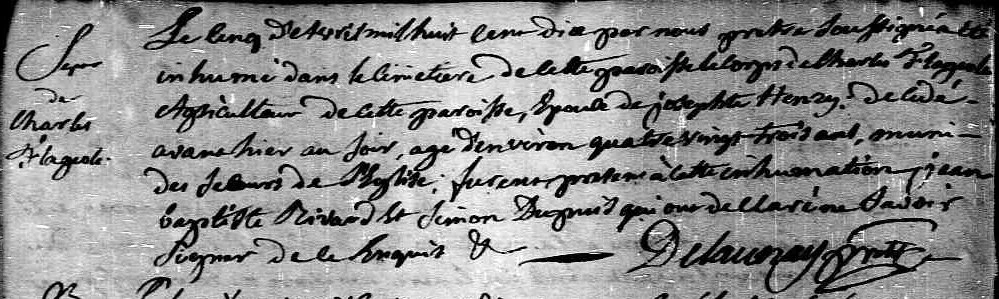 Sepre
de
Charles
Flageole.
Le cinq D'Avril mil huit cent dix par nous pretre Soussigné a été
inhumé dans le Cimetiere de cette paroisse le corps de Charles Flageole
Agriculteur de cette paroisse, Epoux de josephte Henry. decedé-
avant hier au Soir, agé d'environ quatre vingt trois ans, muni-
des secours de l'Eglise; furent presens à cette inhumation, jean
baptiste Rivard et Simon Dupuis qui ont declaré ne Savoir
Signer de ce Enquis &
Delaunay ptre